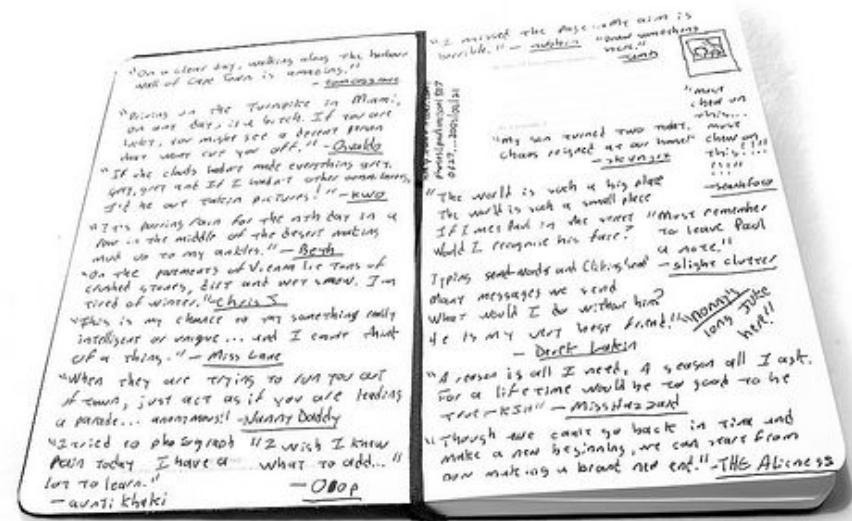 "On a clear day, walking along the harbour
wall of Cape Town is amazing."
"Driving on the Turnpike in Miami,
on any day, is a bitch. If you are
lucky, you might see a decent person
that wont cut you off." - Osvaldo
"If the clouds hadn't made everything grey,
grey, grey and If I hadn't other commitments,
I'd be out takin pictures!" - KWO
"It's pouring Rain for the nth day in a
row in the middle of the desert making
mud up to my ankles." - Beth
"On the pavements of Vienna lie tons of
crushed stones, dirt and wet snow. I'm
tired of winter." - Chris J
"This is my chance to say something really
intelligent or unique... and I can't think
of a thing." - Miss Lane
"When they are trying to run you out
of town, just act as if you are leading
a parade... anonymous!! - Nanny Daddy
"I tried to photograph
Rain today I have a
lot to learn."
- aunti Khaki
"I wish I knew
what to add..."
- Ooop
"I missed the page... My aim is
horrible." -
"Draw something
here."
"My son turned two today.
chaos reigned at our house"
"Must
chew on
this...
must
chew on
this!!!!
!!!!"
"The world is such a big place
The world is such a small place
If I met Paul in the street
Would I recognise his face?
Typing send-words and Clicking 'send'
Many messages we send
What would I do without him?
He is my very best friend."
- Derek Lakin
"Must remember
to leave Paul
a note."
- slight clutter
long
here!!
"A reason is all I need, A season all I ask.
For a lifetime would be to good to be
true - " - MissHazzard
"Though we can't go back in time and
make a new beginning, we can start from
now making a brand new end." - THE Alieness